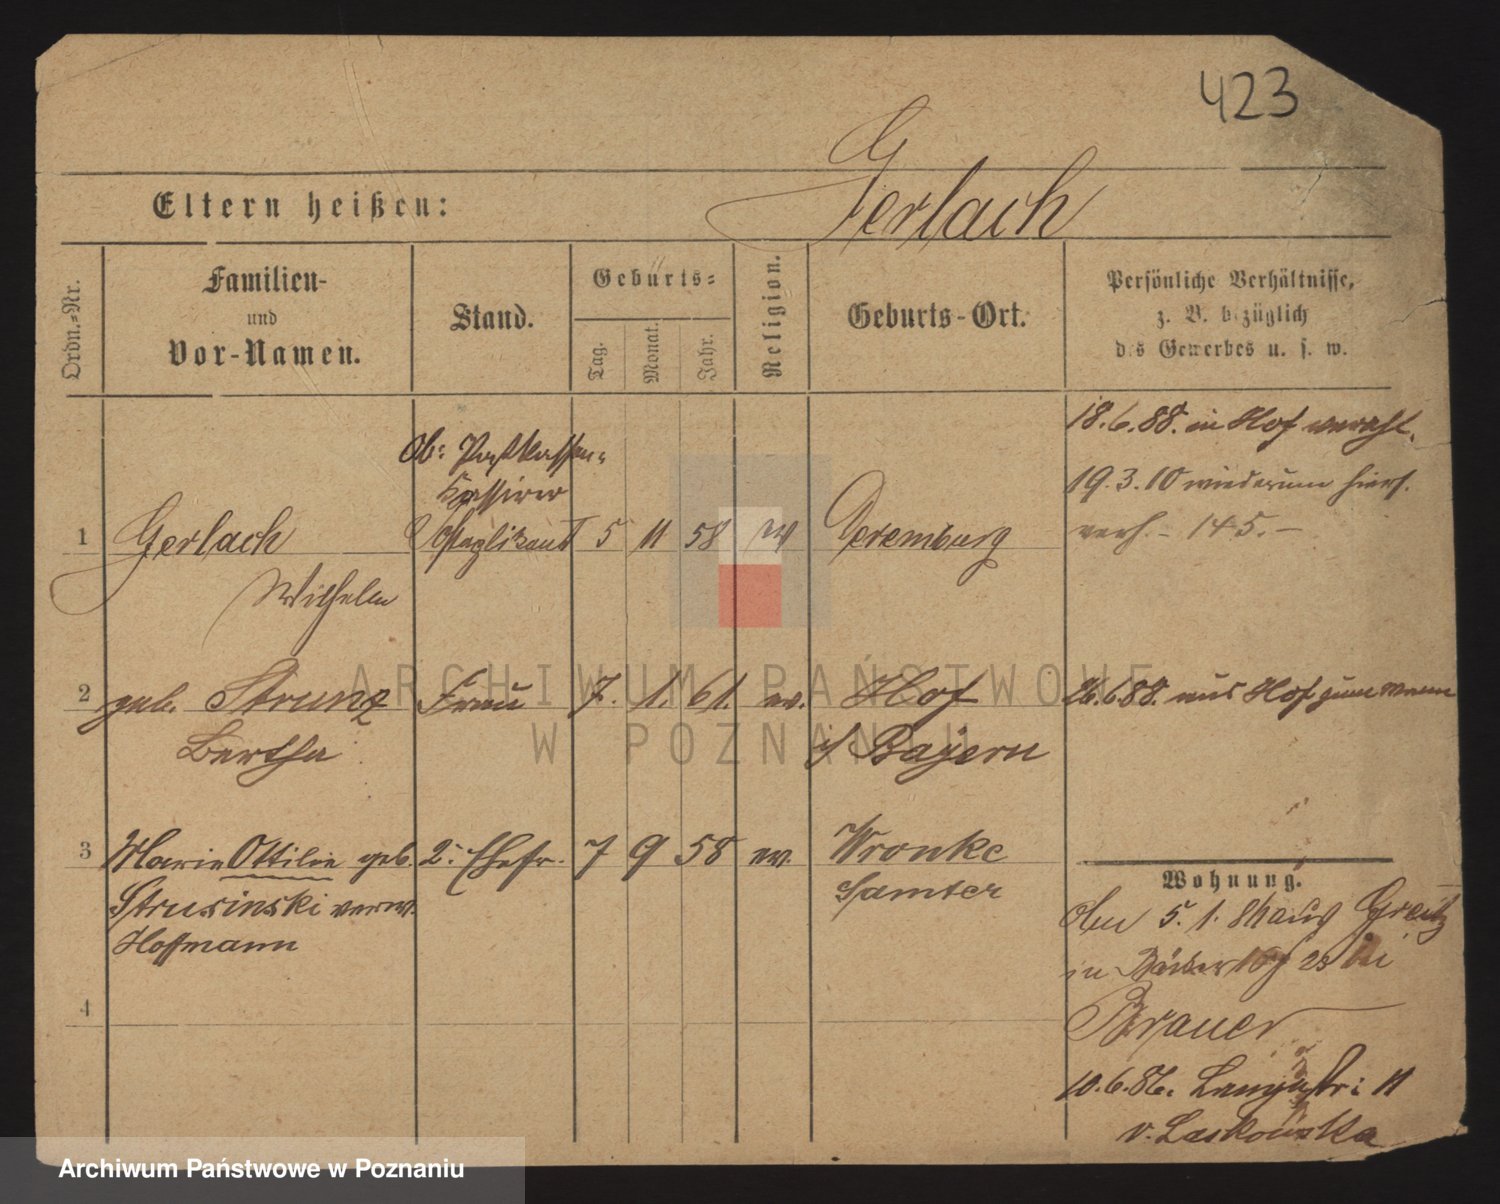 423
Gerlach
Eltern heißen:
Ordn.=Nr.
Familien-
und
Vor-Namen.
Stand.
Geburts=
Tag.
Monat.
Jahr.
Religion.
Geburts-Ort.
Persönliche Verhältnisse,
z. B. bezüglich
des Gewerbes u. s. w.
Ob: Postkassen-
Kassirer
1 Gerlach 5 11 58 Deremburg
Wilhelm
18.6.88. in Hof
19.3.10 wiederum hiers.
verh. - 145. -
2 geb. Strunz Frau 7. 1. 61. ev. Hof
Bertha i/ Bayern
26.6.88. aus Hof
3 Marie Ottilie geb. 2. Ehefr. 7 9 58 ev. Wronke
Strusinski verw. Samter
Hoffmann
4
Wohnung.
den 5. 1. aus Greitz
in 25 bei
Brauer
10.6.86. Langestr: 11
v. Laskowska
ARCHIWUM PAŃSTWOWE
W POZNANIU
Archiwum Państwowe w Poznaniu